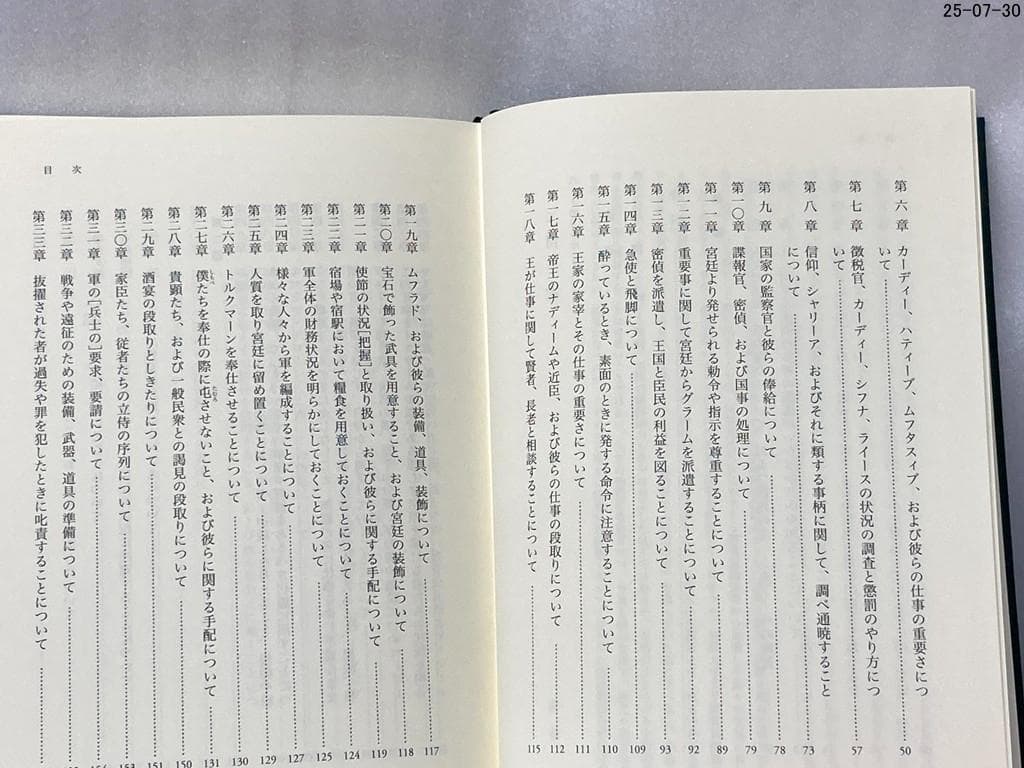 25-07-30
第六章 カーディー、ハティーブ、ムフタスィブ、および彼らの仕事の重要さにつ
いて 50
第七章 徴税官、カーディー、シフナ、ライースの状況の調査と懲罰のやり方につ
いて 57
第八章 信仰、シャリーア、およびそれに類する事柄に関して、調べ通暁すること
について 73
第九章 国家の監察官と彼らの俸給について 78
第一〇章 諜報官、密偵、および国事の処理について 79
第一一章 宮廷より発せられる勅令や指示を尊重することについて 89
第一二章 重要事に関して宮廷からグラームを派遣することについて 92
第一三章 密偵を派遣し、王国と臣民の利益を図ることについて 93
第一四章 急使と飛脚について 109
第一五章 酔っているとき、素面のときに発する命令に注意することについて 110
第一六章 王家の家宰とその仕事の重要さについて 111
第一七章 帝王のナディームや近臣、および彼らの仕事の段取りについて 112
第一八章 王が仕事に関して賢者、長老と相談することについて 115
目次
第一九章 ムフラド、および彼らの装備、道具、装飾について 117
第二〇章 宝石で飾った武具を用意すること、および宮廷の装飾について 118
第二一章 使節の状況[把握]と取り扱い、および彼らに関する手配について 119
第二二章 宿場や宿駅において糧食を用意しておくことについて 124
第二三章 軍全体の財務状況を明らかにしておくことについて 125
第二四章 様々な人々から軍を編成することについて 127
第二五章 人質を取り宮廷に留め置くことについて 129
第二六章 トルクマーンを奉仕させることについて 130
第二七章 僕たちを奉仕の際に屯させないこと、および彼らに関する手配について 131
第二八章 貴顕たち、および一般民衆との謁見の段取りについて 150
第二九章 酒宴の段取りとしきたりについて 151
第三〇章 家臣たち、従者たちの立侍の序列について
第三一章 軍の[兵士の]要求、要請について
第三二章 戦争や遠征のための装備、武器、道具の準備について
第三三章 抜擢された者が過失や罪を犯したときに叱責することについて